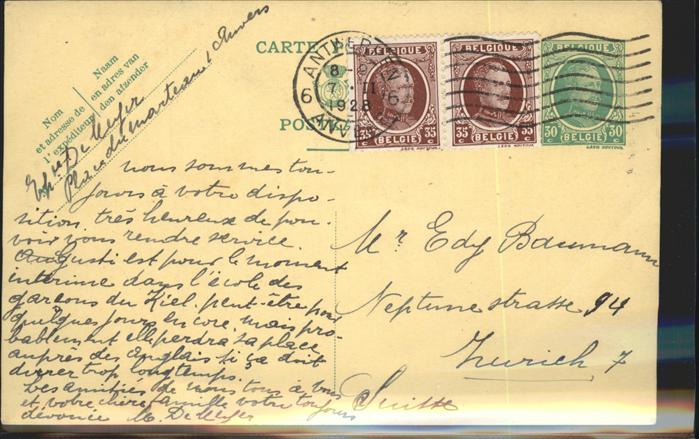 Nom
et adresse de
l'expéditeur
Naam
en adres van
den afzender
De Meyer
Place du
Anvers
CARTE
POSTKAART
ANTWERPEN
6 7 II 6
1928
BELGIQUE
35 c 35 c
BELGIË
BELGIQUE
35 c 35 c
BELGIË
BELGIQUE
30 30
BELGIË
nous sommes tou-
jours à votre dispo-
sition, très heureux de pou-
voir vous rendre service.
Augusti est pour le moment
intérime dans l'école des
garçons du Kiel, peut-être pour
quelques jours encore, mais pro-
bablement elle perdra sa place
auprès des Anglais si ça doit
durer trop longtemps.
Les amitiés de nous tous à vous
et votre chère famille votre toujours
dévouée M. De Meyer
Mr Edy Baumann
Neptunestrasse 94
Zurich 7
Suisse